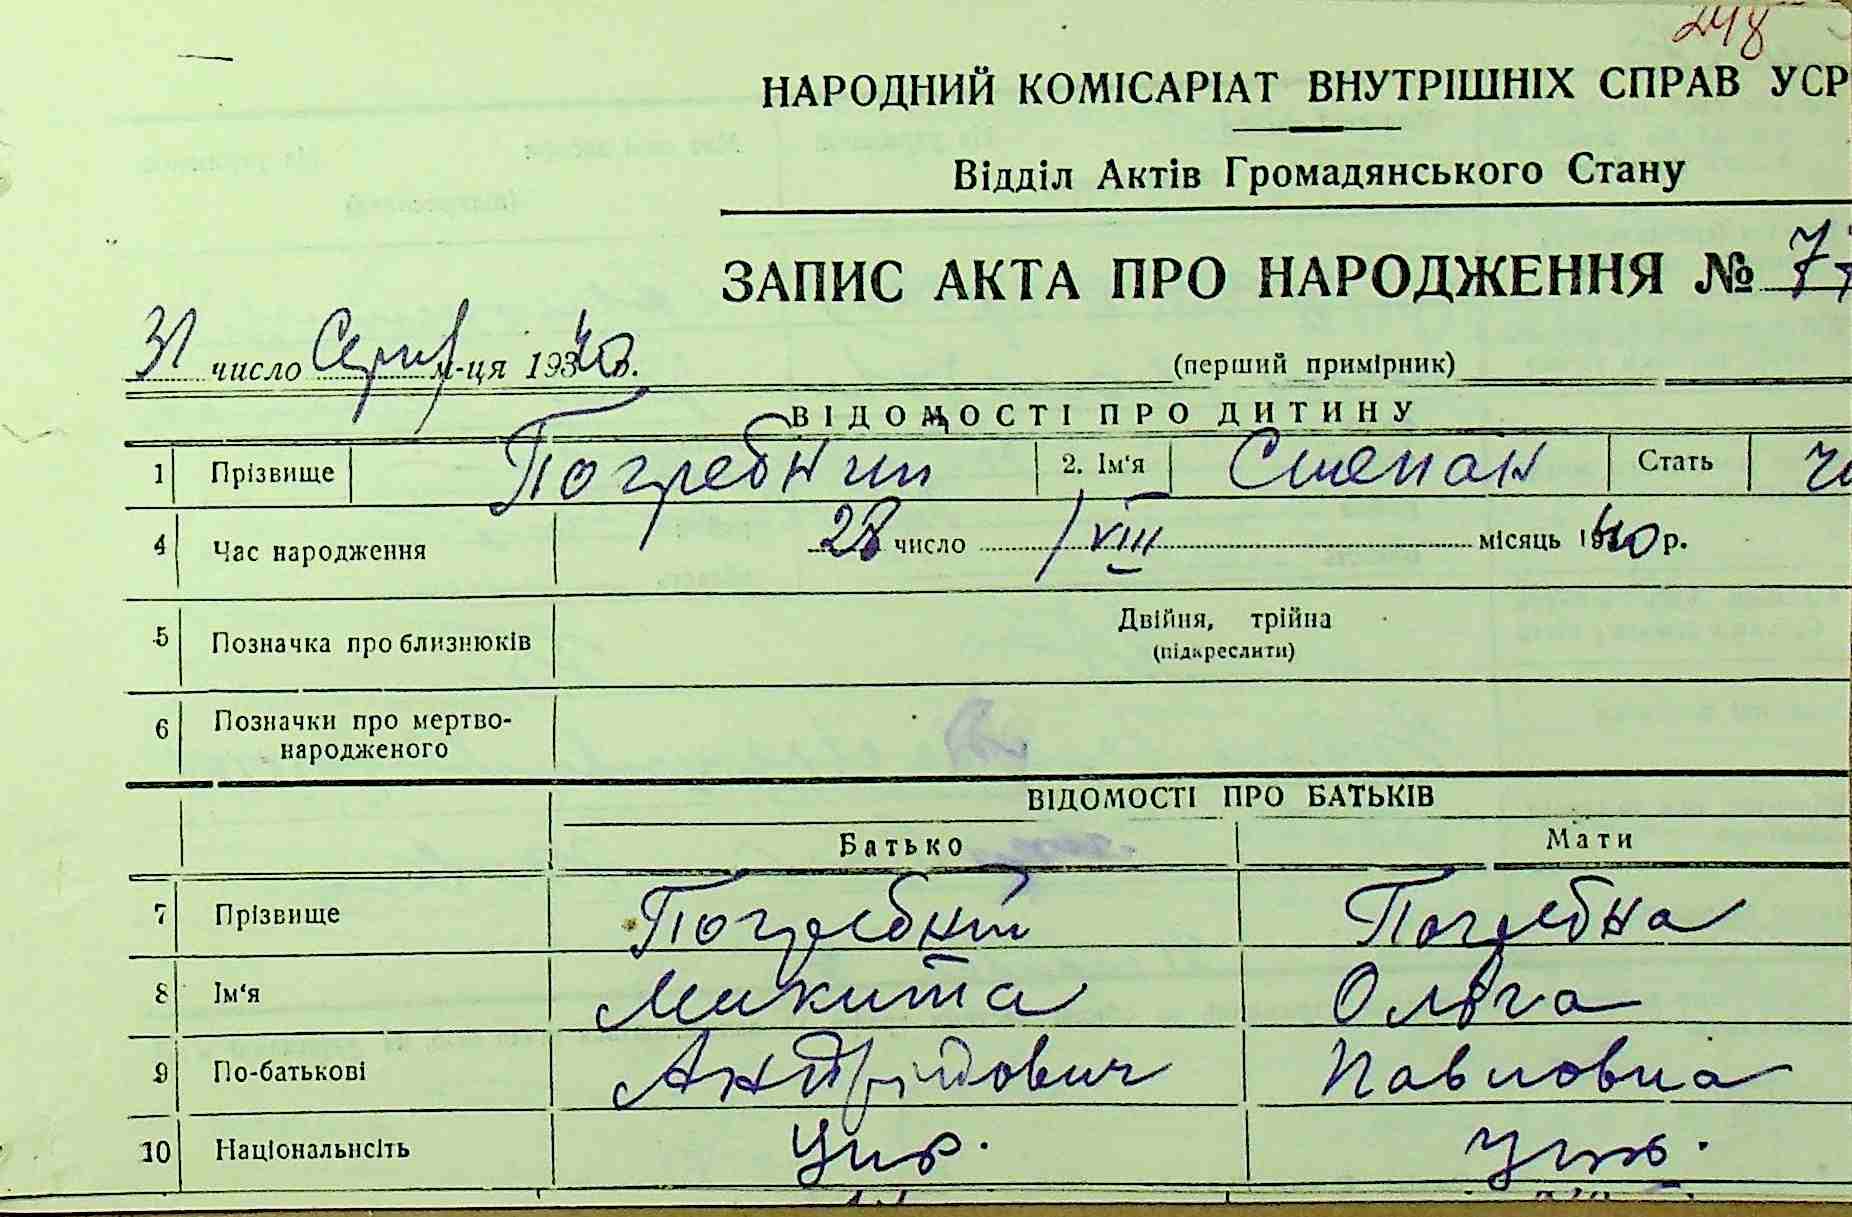 248
НАРОДНИЙ КОМІСАРІАТ ВНУТРІШНІХ СПРАВ УСР
Відділ Актів Громадянського Стану
ЗАПИС АКТА ПРО НАРОДЖЕННЯ № 77
31 число Серп м-ця 1940 р. (перший примірник)
ВІДОМОСТІ ПРО ДИТИНУ
1 Прізвище Погребний 2. Ім'я Степан Стать чо
4 Час народження 28 число VIII місяць 1940 р.
5 Позначка про близнюків Двійня, трійна
(підкреслити)
6 Позначки про мертво-
народженого
ВІДОМОСТІ ПРО БАТЬКІВ
Батько Мати
7 Прізвище Погребний Погребна
8 Ім'я Микита Ольга
9 По-батькові Андрійович Павловна
10 Національність Укр. Укр.